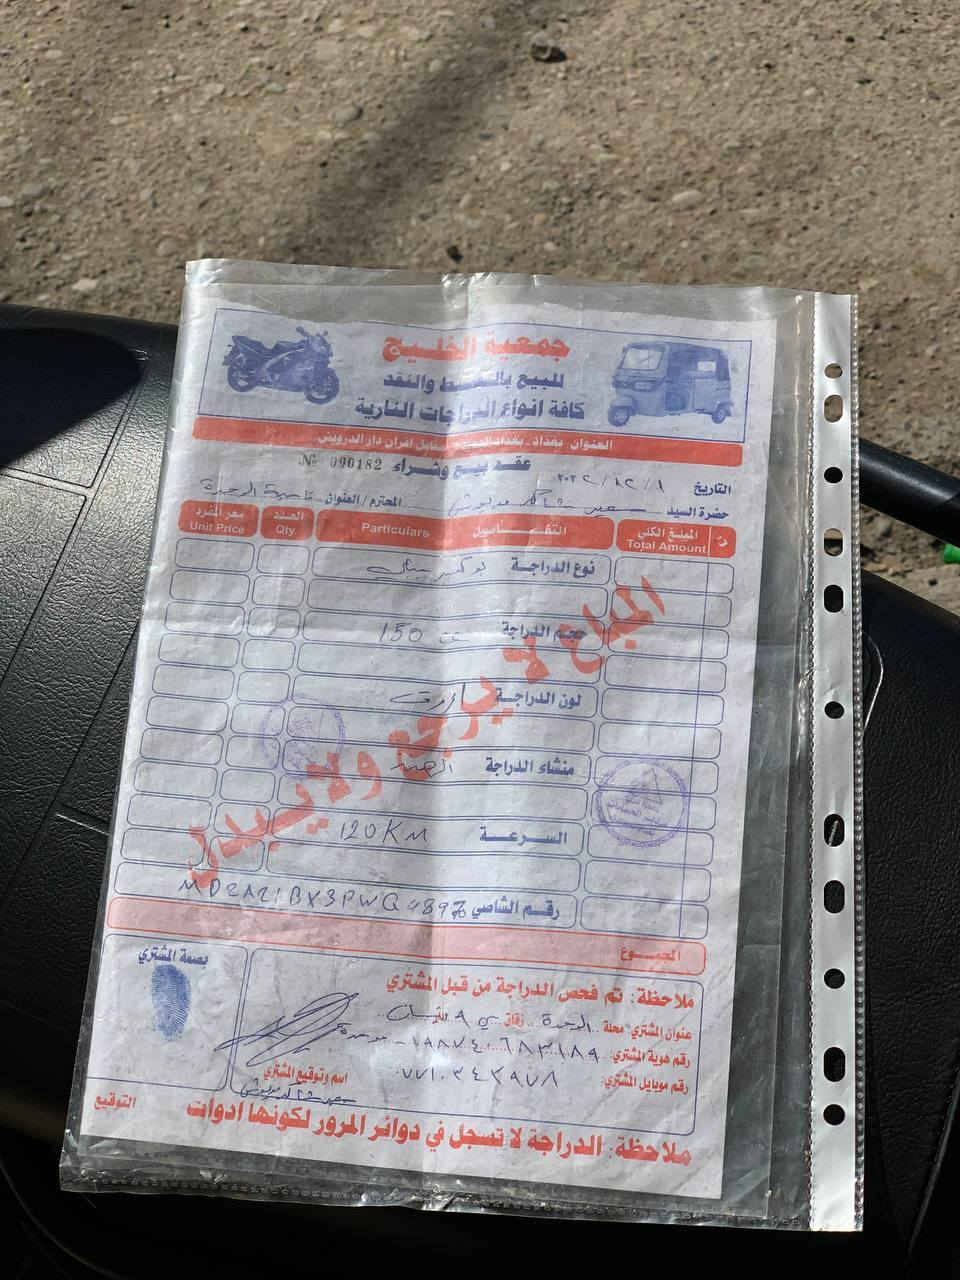 جمعية الخليج
للبيع بالتقسيط والنقد
كافة انواع الدراجات النارية
العنوان بغداد - بغداد الجديدة - مقابل افران دار الدرويش
عقد بيع وشراء № 090182
التاريخ ٢٠٢٢/١٢/١
حضرة السيد المحترم / العنوان الوحدة
ت المبلغ الكلي التفــــاصيل العدد سعر المفرد
Total Amount Particulars Qty. Unit Price
نوع الدراجة
حجم الدراجة 150 cc
لون الدراجة ازرق
منشاء الدراجة الهند
السرعة 120 KM
رقم الشاصي
المجموع
المبلغ لا يرجع ولا يبدل
بصمة المشتري
ملاحظة: تم فحص الدراجة من قبل المشتري
عنوان المشتري: محلة الوحدة زقاق
رقم هوية المشتري:
رقم موبايل المشتري: ٠٧٧١٠٣٤٣٩٧٨
اسم وتوقيع المشتري
التوقيع
ملاحظة: الدراجة لا تسجل في دوائر المرور لكونها ادوات